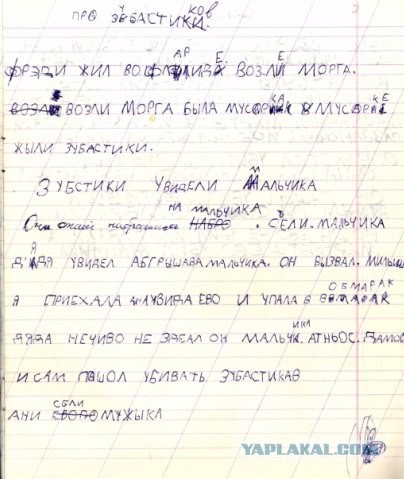 ПРО ЗУБАСТИКОВ
ФРЭДИ ЖИЛ ВО ФЛАРИДЕ ВОЗЛЕ МОРГА.
ВОЗЛИ МОРГА БЫЛА МУСОРКА В МУСОРКЕ
ЖЫЛИ ЗУБАСТИКИ.
ЗУБСТИКИ УВИДЕЛИ МАЛЬЧИКА
НА МАЛЬЧИКА
Они НАБРО. СЪЕЛИ. МАЛЬЧИКА
ДЯДЯ УВИДЕЛ АБГРЫЗАВА МАЛЬЧИКА. ОН ВЫЗВАЛ.
Я ПРИЕХАЛА УВИДА ЕВО И УПАЛА В ОБМАРАК
ДЯДА НЕЧИВО НЕ ОН МАЛЬЧИКА. АТНЬОС. ДАМОВ
И САМ ПАШОЛ УБИВАТЬ ЗУБАСТИКАВ
АНИ СЕЛИ МУЖЫКА
YAPLAKAL.COM